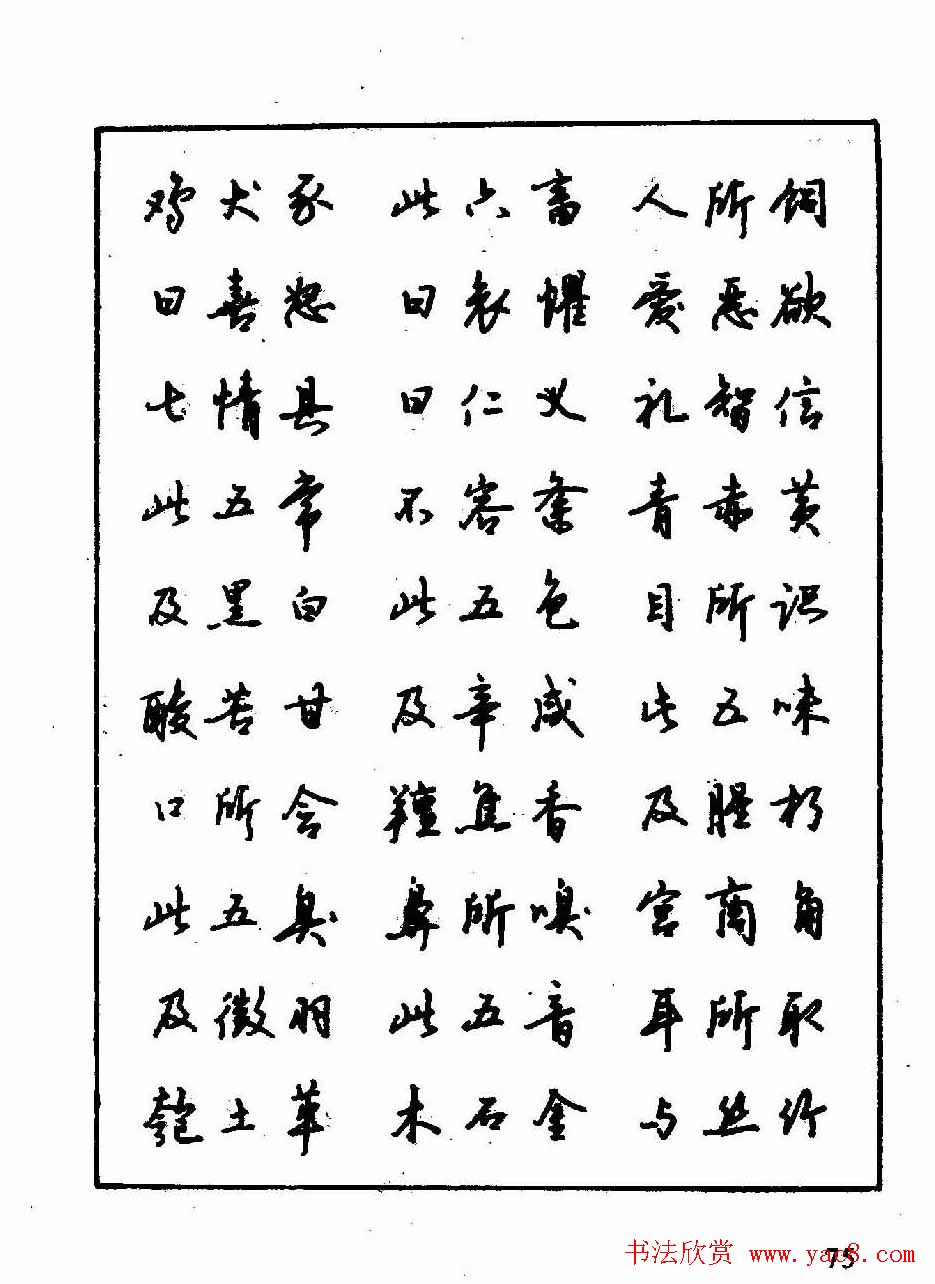 鸡犬豕 此六畜 人所饲
曰喜怒 曰哀惧 爱恶欲
七情具 曰仁义 礼智信
此五常 不容紊 青赤黄
及黑白 此五色 目所识
酸苦甘 及辛咸 此五味
口所含 羶焦香 及腥朽
此五臭 鼻所嗅 宫商角
及徵羽 此五音 耳所取
匏土革 木石金 与丝竹
75
书法欣赏 www.yac8.com